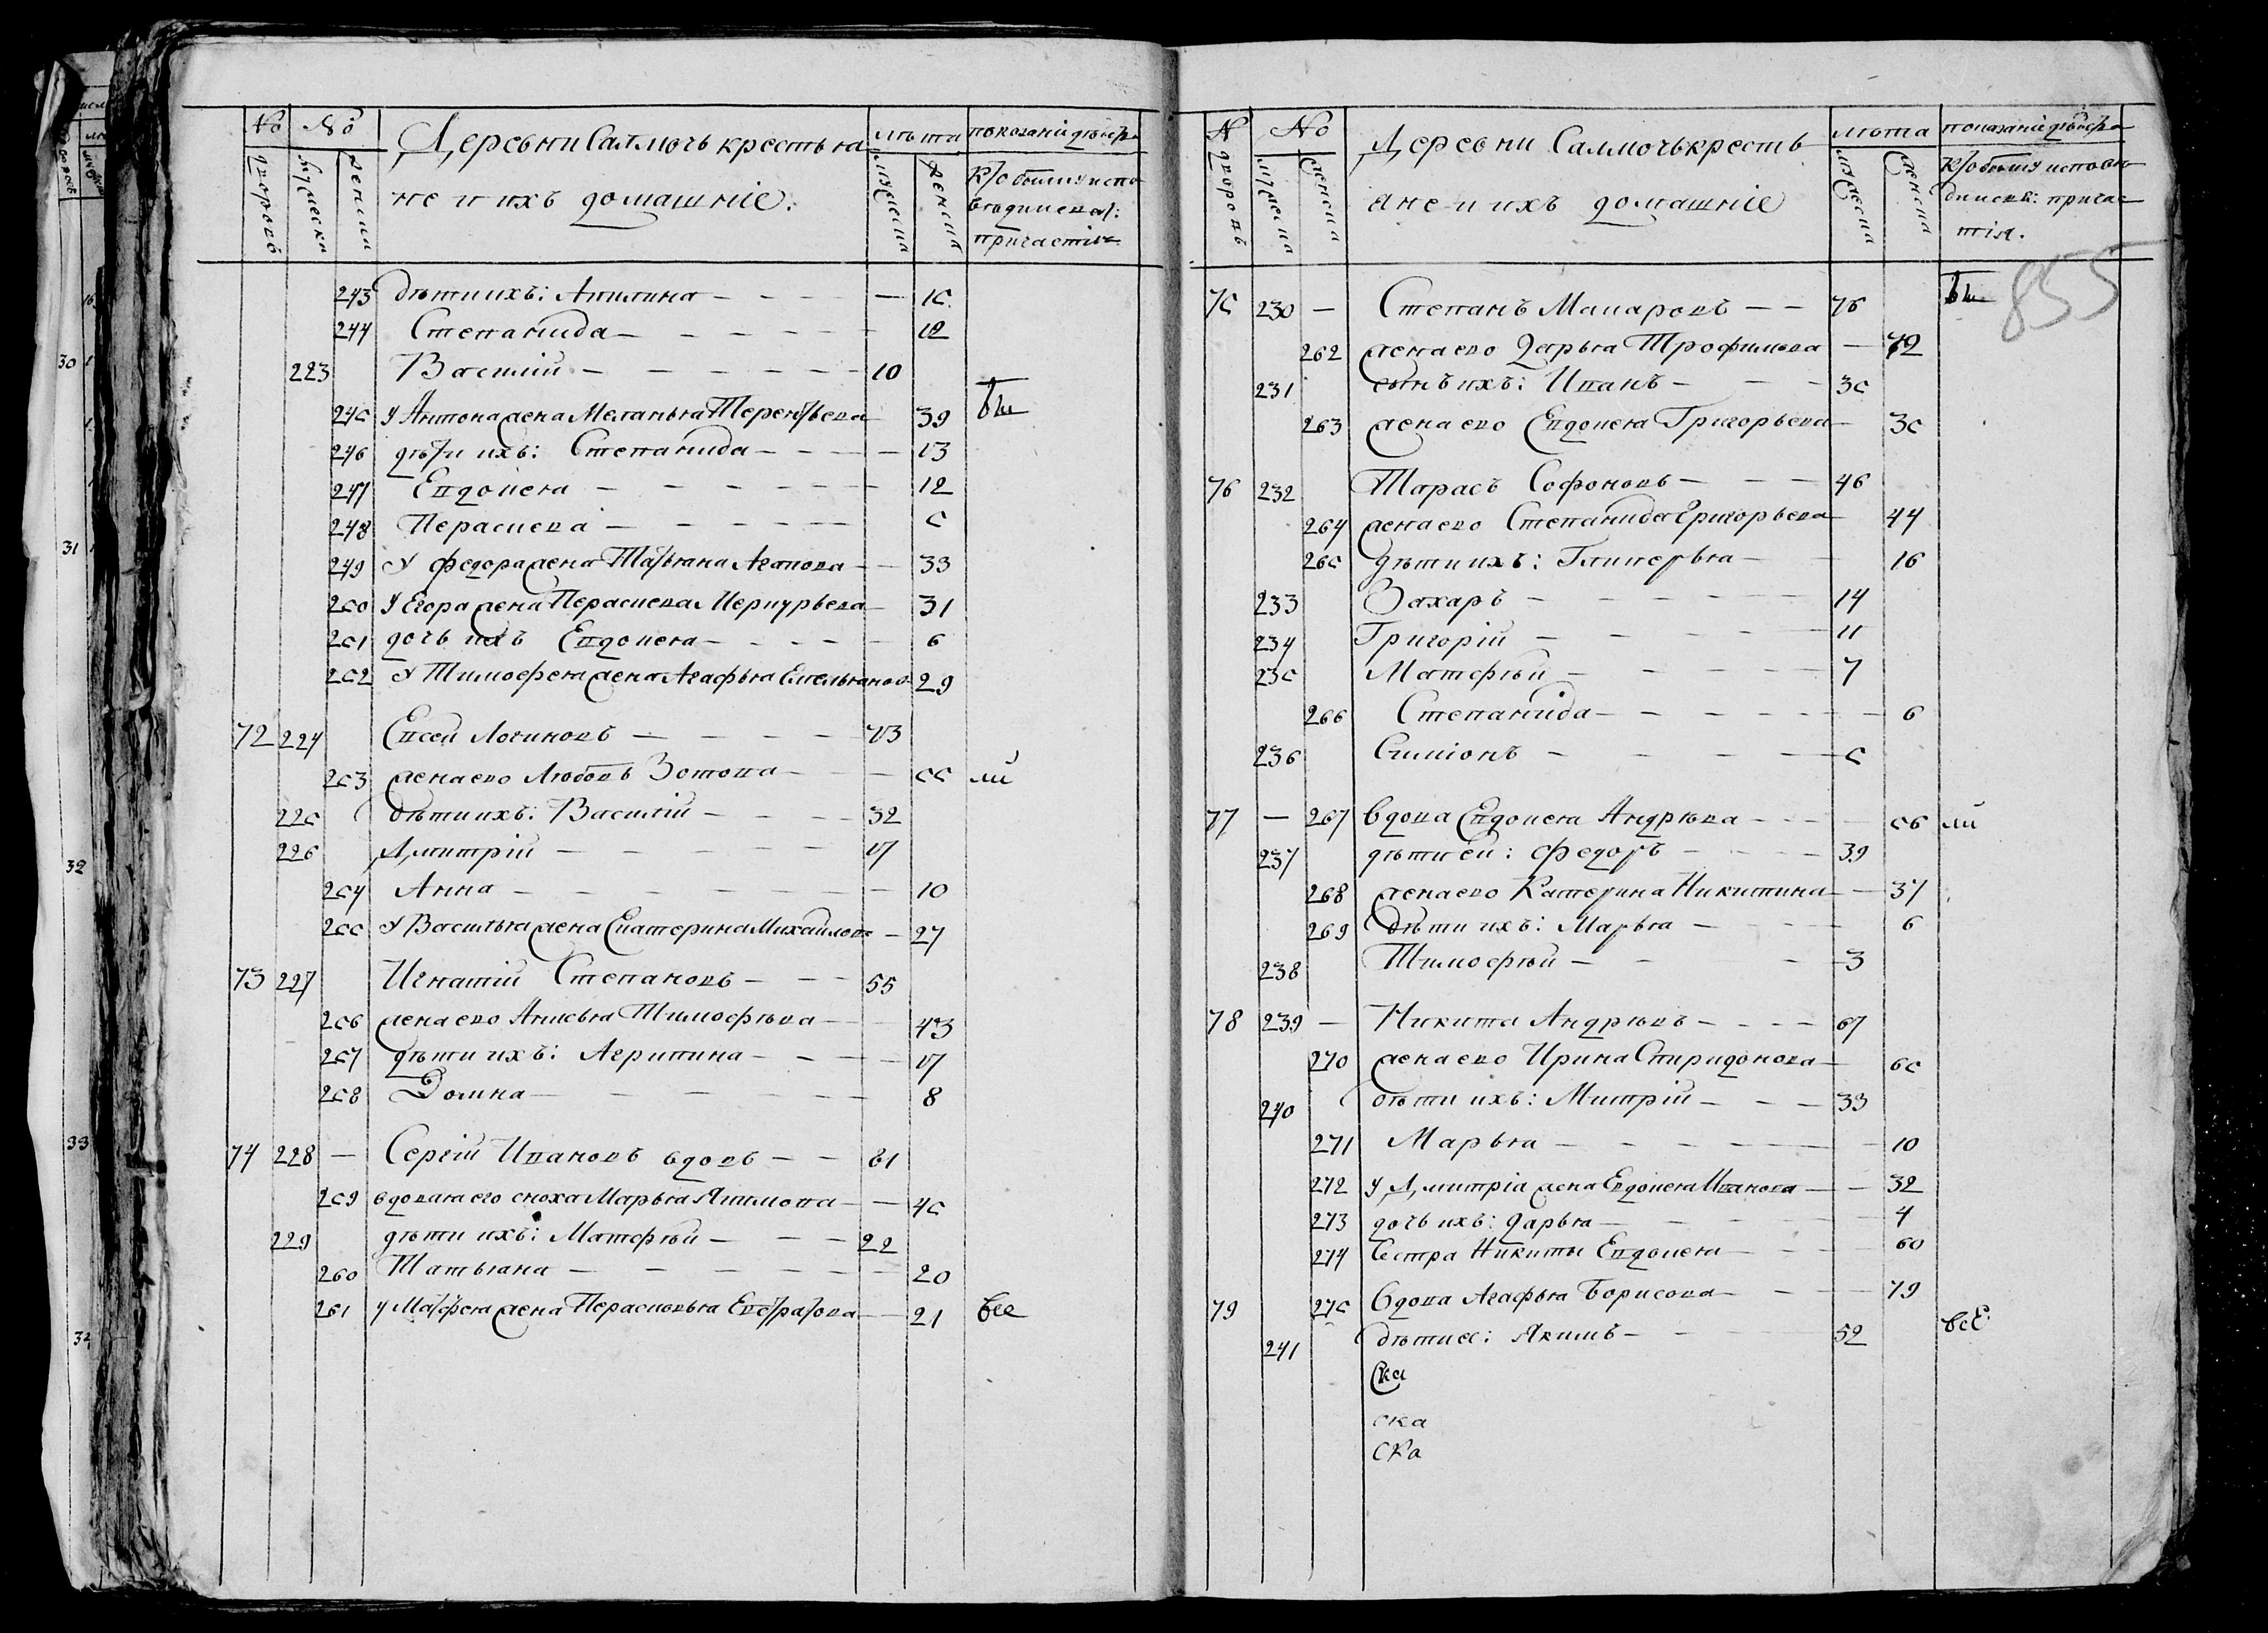 № № Деревни Салмочь крестья лѣта показаніе дѣйстра
дворовъ мужеска женска не и ихъ домашніе: мужеска женска кто былъ у испо
вѣди и св:
причастія
243 дѣти ихъ: Акилина — 15
244 Степанида — 12
223 Василій — 10
245 У Антона жена Меланья Терентьева 39 бы
246 дѣти ихъ: Степанида — 13
247 Евдокея — 12
248 Пераскева — 5
249 У федора жена Татьяна Агапова — 33
250 У Егора жена Пераскева Меркурьева — 31
251 дочь ихъ Евдокея — 6
252 У Тимофея жена Агафья Емельянов 29
72 224 Евсей Логиновъ — 73
253 жена ево Любовь Зотова — 55 ли
225 дѣти ихъ: Василій — 32
226 Дмитрій — 17
254 Анна — 10
255 У Василья жена Екатерина Михайлова — 27
73 227 Игнатій Степановъ — 55
256 жена ево Аксенья Тимофѣева — 43
257 дѣти ихъ: Агрипина — 17
258 Домна — 8
74 228 — Сергій Ивановъ вдовъ — 61
259 вдовая его сноха Марья Якимова — 45
229 дѣти ихъ: Матфѣй — 22
260 Татьяна — 20
261 у Матфея жена Перасковья Евстратова — 21 все
№ № Деревни Салмочь кресть лѣта показаніе дѣйстра
дворовъ мужеска женска яне и ихъ домашніе мужеска женска кто былъ у исповѣ
ди и св: причас
тія.
855
75 230 — Степанъ Макаровъ — 76 бы
262 жена ево Дарья Трофимова — 72
231 сынъ ихъ: Иванъ — 35
263 жена ево Евдокея Григорьева — 35
76 232 Тарасъ Софоновъ — 46
264 жена ево Степанида Григорьева 44
265 дѣти ихъ: Гликерья — 16
233 Захаръ — 14
234 Григорій — 11
235 Матфѣй — 7
266 Степанида — 6
236 Симіонъ — 5
77 — 267 вдова Евдокея Андрѣева — 56 ли
237 дѣти еи: федоръ — 39
268 жена ево Катерина Никитина — 37
269 дѣти ихъ: Марья — 6
238 Тимофѣй — 3
78 239 — Никита Андрѣевъ — 67
270 жена ево Ирина Спиридонова — 65
240 дѣти ихъ: Митрій — 33
271 Марья — 10
272 У Дмитріа жена Евдокея Иванова — 32
273 дочь ихъ: Дарья — 4
274 Сестра Никиты Евдокея — 60
79 275 Вдова Агафья Борисова — 79
241 дѣти ея: Якимъ — 52 все
Ска
ска
Ска